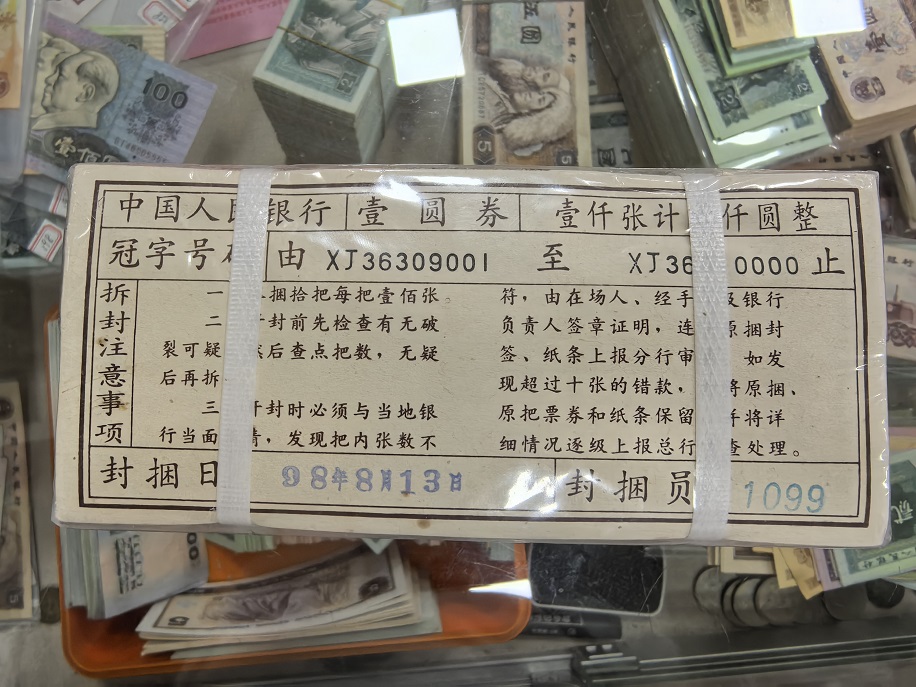 中国人民银行 壹圆券 壹仟张计 仟圆整
冠字号 由 XJ36309001 至 XJ36 0000 止
拆封注意事项
一 捆拾把每把壹佰张
二 封前先检查有无破
裂可疑 后查点把数，无疑
后再拆
三 封时必须与当地银
行当面 ，发现把内张数不
符，由在场人、经手 及银行
负责人签章证明，连 原捆封
签、纸条上报分行审 如发
现超过十张的错款， 将原捆、
原把票券和纸条保留 将详
细情况逐级上报总行 查处理。
封捆日 98年8月13日 封捆员 1099
100
壹佰
伍圆
5
5
壹
贰